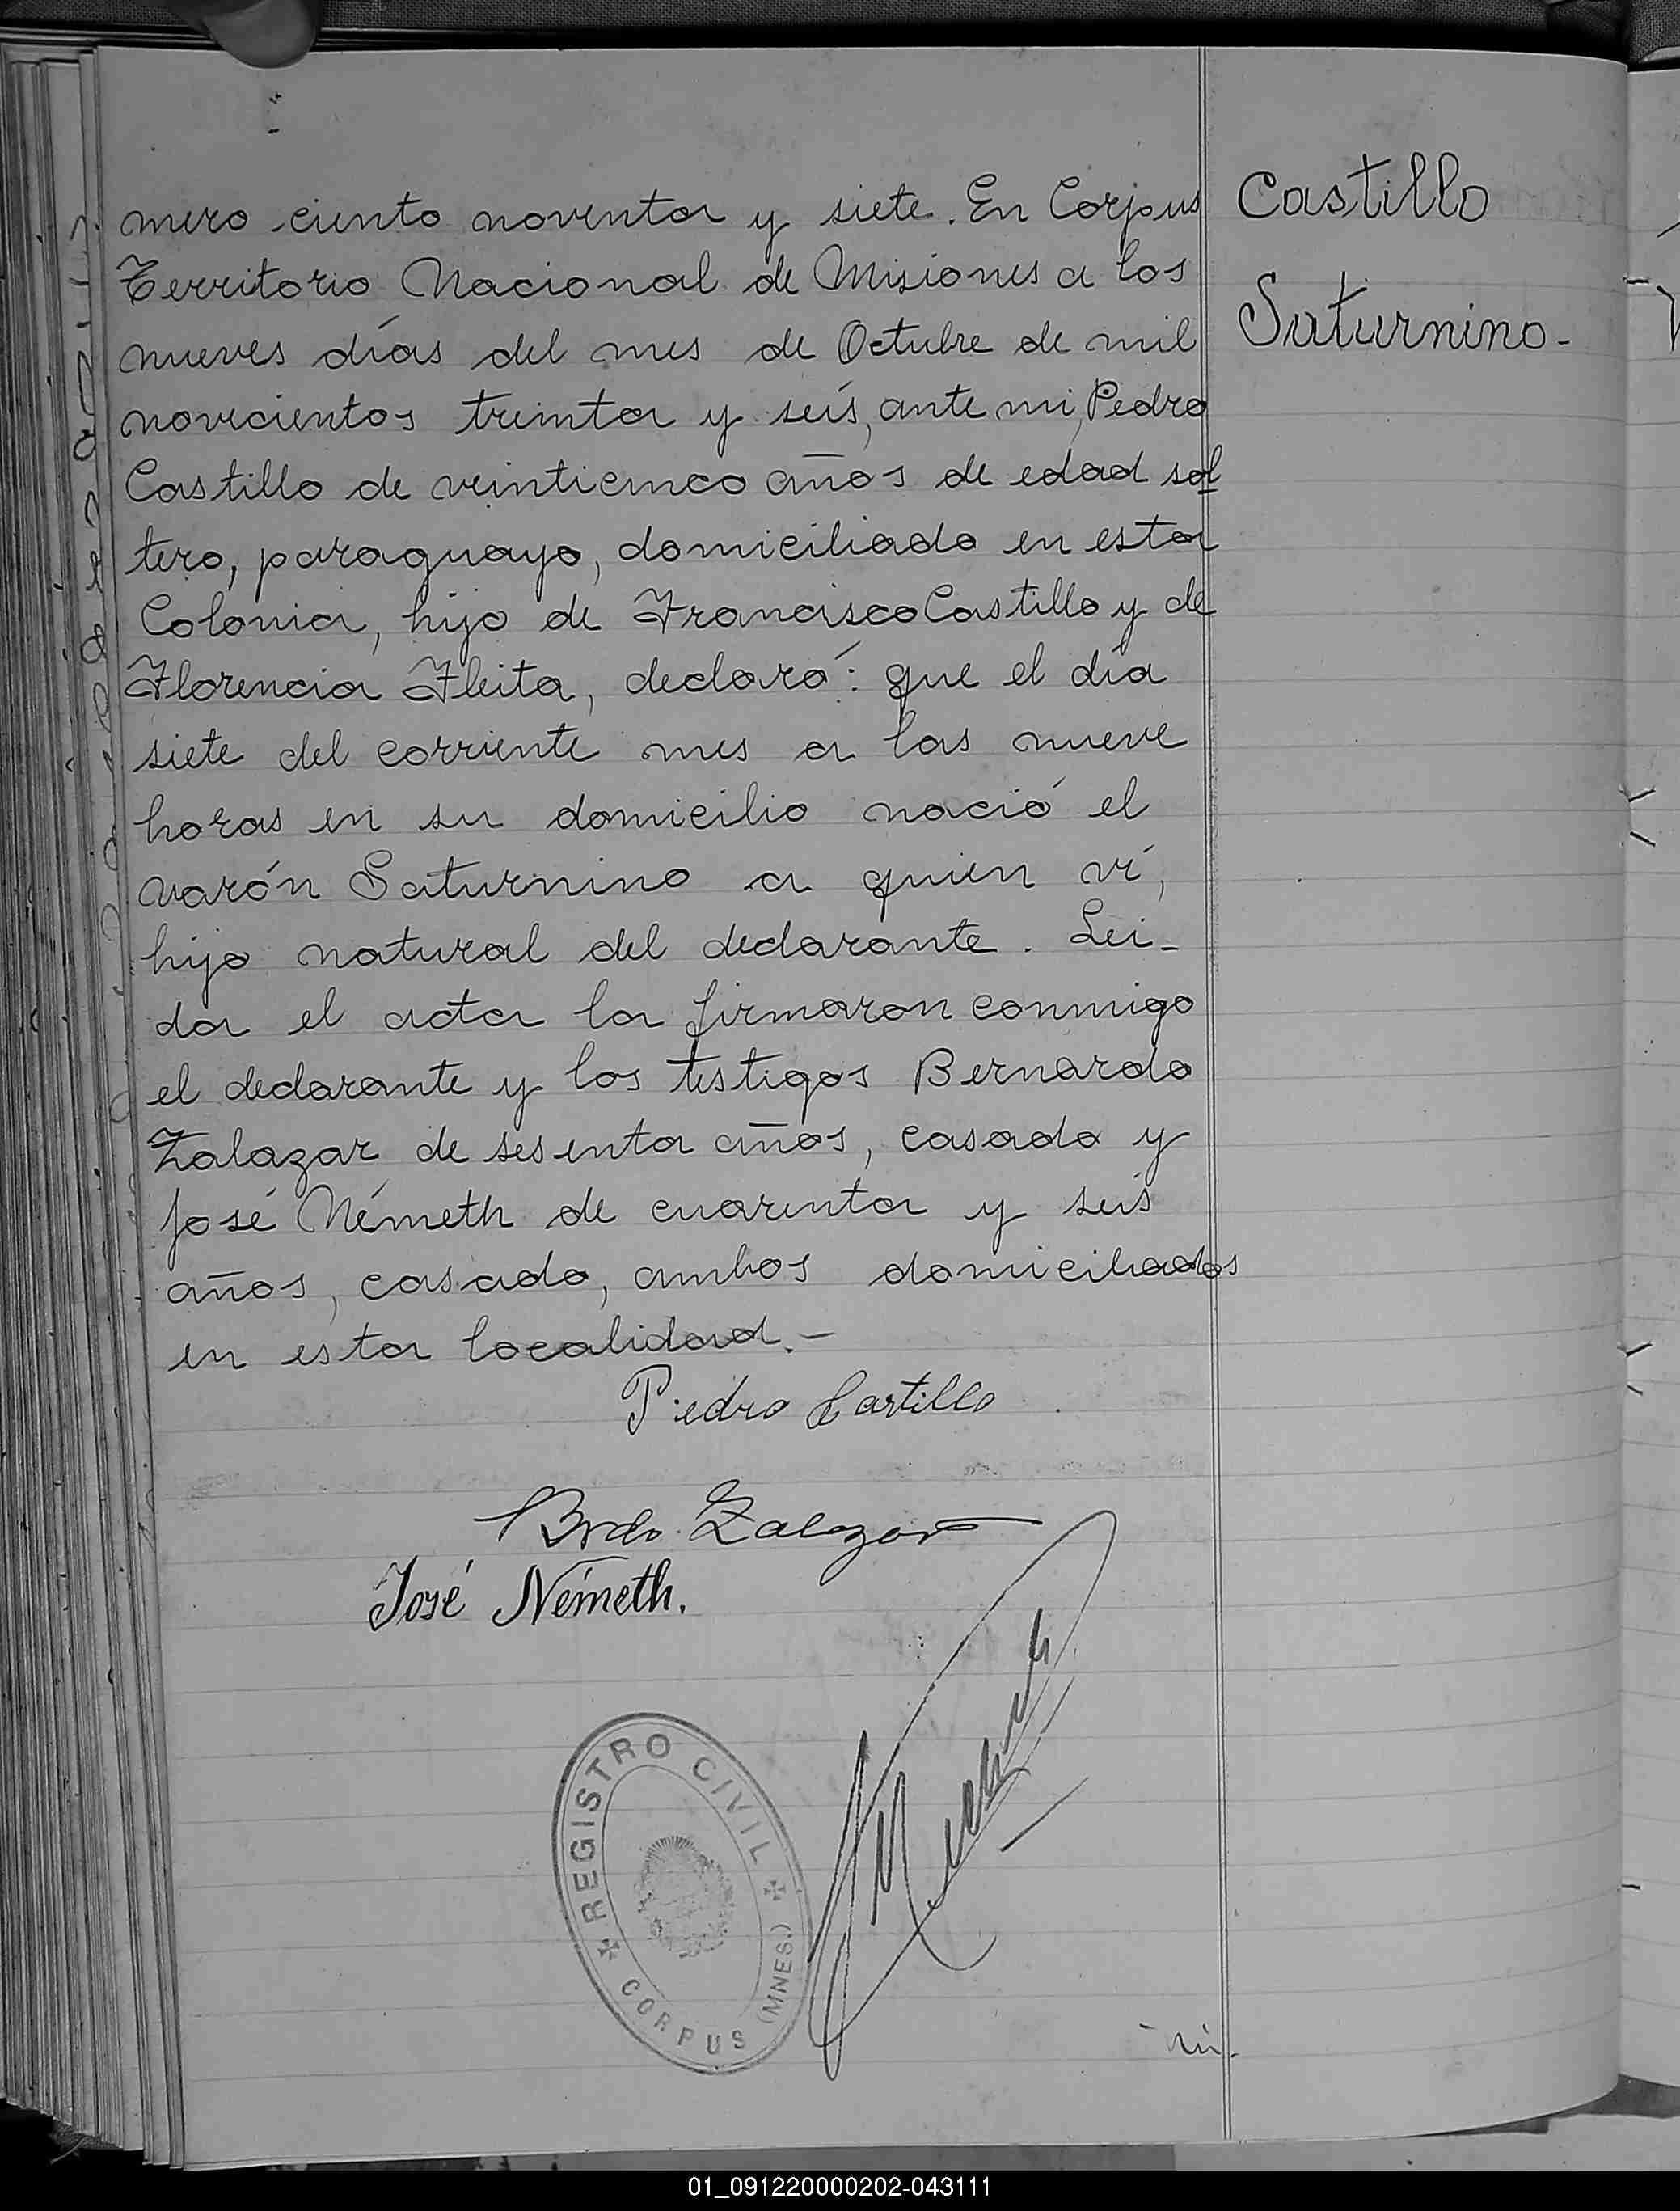 mero ciento noventa y siete. En Corpus
Territorio Nacional de Misiones a los
nueves días del mes de Octubre de mil
novecientos treinta y seis, ante mi, Pedro
Castillo de veinticinco años de edad sol
tero, paraguayo, domiciliado en esta
Colonia, hijo de Francisco Castillo y de
Florencia Fleita, declaró: que el día
siete del corriente mes a las nueve
horas en su domicilio nació el
varón Saturnino a quien ví,
hijo natural del declarante. Lei-
da el acta la firmaron conmigo
el declarante y los testigos Bernardo
Zalazar de sesenta años, casado y
José Németh de cuarenta y seis
años, casado, ambos domiciliados
en esta localidad.-
Castillo
Saturnino-
Pedro Castillo
Brdo. Zalazar
José Németh.
REGISTRO CIVIL
CORPUS (MNES.)
01_091220000202-043111